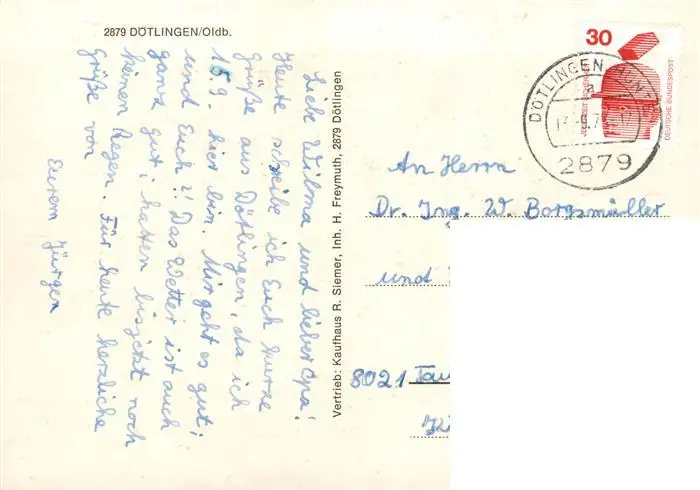 2879 DÖTLINGEN/Oldb.
Liebe Wilma und lieber Opa!
Heute schreibe ich Euch kurze
Grüße aus Dötlingen, da ich
15.9. hier bin. Mir geht es gut,
und Euch?! Das Wetter ist auch
ganz gut; hatten bis jetzt noch
keinen Regen. Für heute herzliche
Grüße von
Eurem Jürgen
Vertrieb: Kaufhaus R. Siemer, Inh. H. Freymuth, 2879 Dötlingen
30
DEUTSCHE BUNDESPOST
DÖTLINGEN
a
2879
An Herrn
Dr. Ing. W. Borgsmüller
und
8021